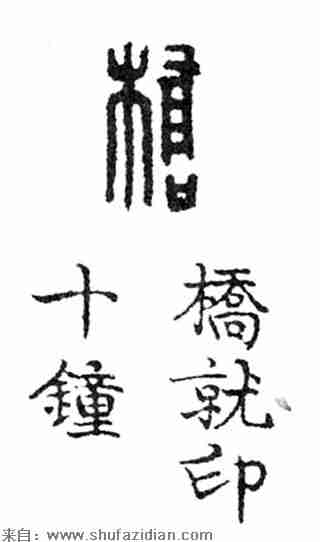 橋
橋就印
十鐘
来自：www.shufazidian.com